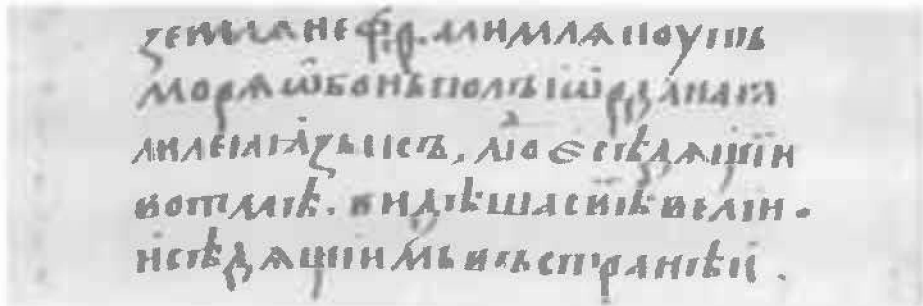 землꙗ нефⷮалимлѧ поуть
морѧ ѡбонъполъ іѡрдана га
лилеꙗ ꙗзыкъ, люⷣє сѣдѧщїи
вотмѣ. видѣша свѣ велїи.
исѣдѧщиимъ въстранѣ и.